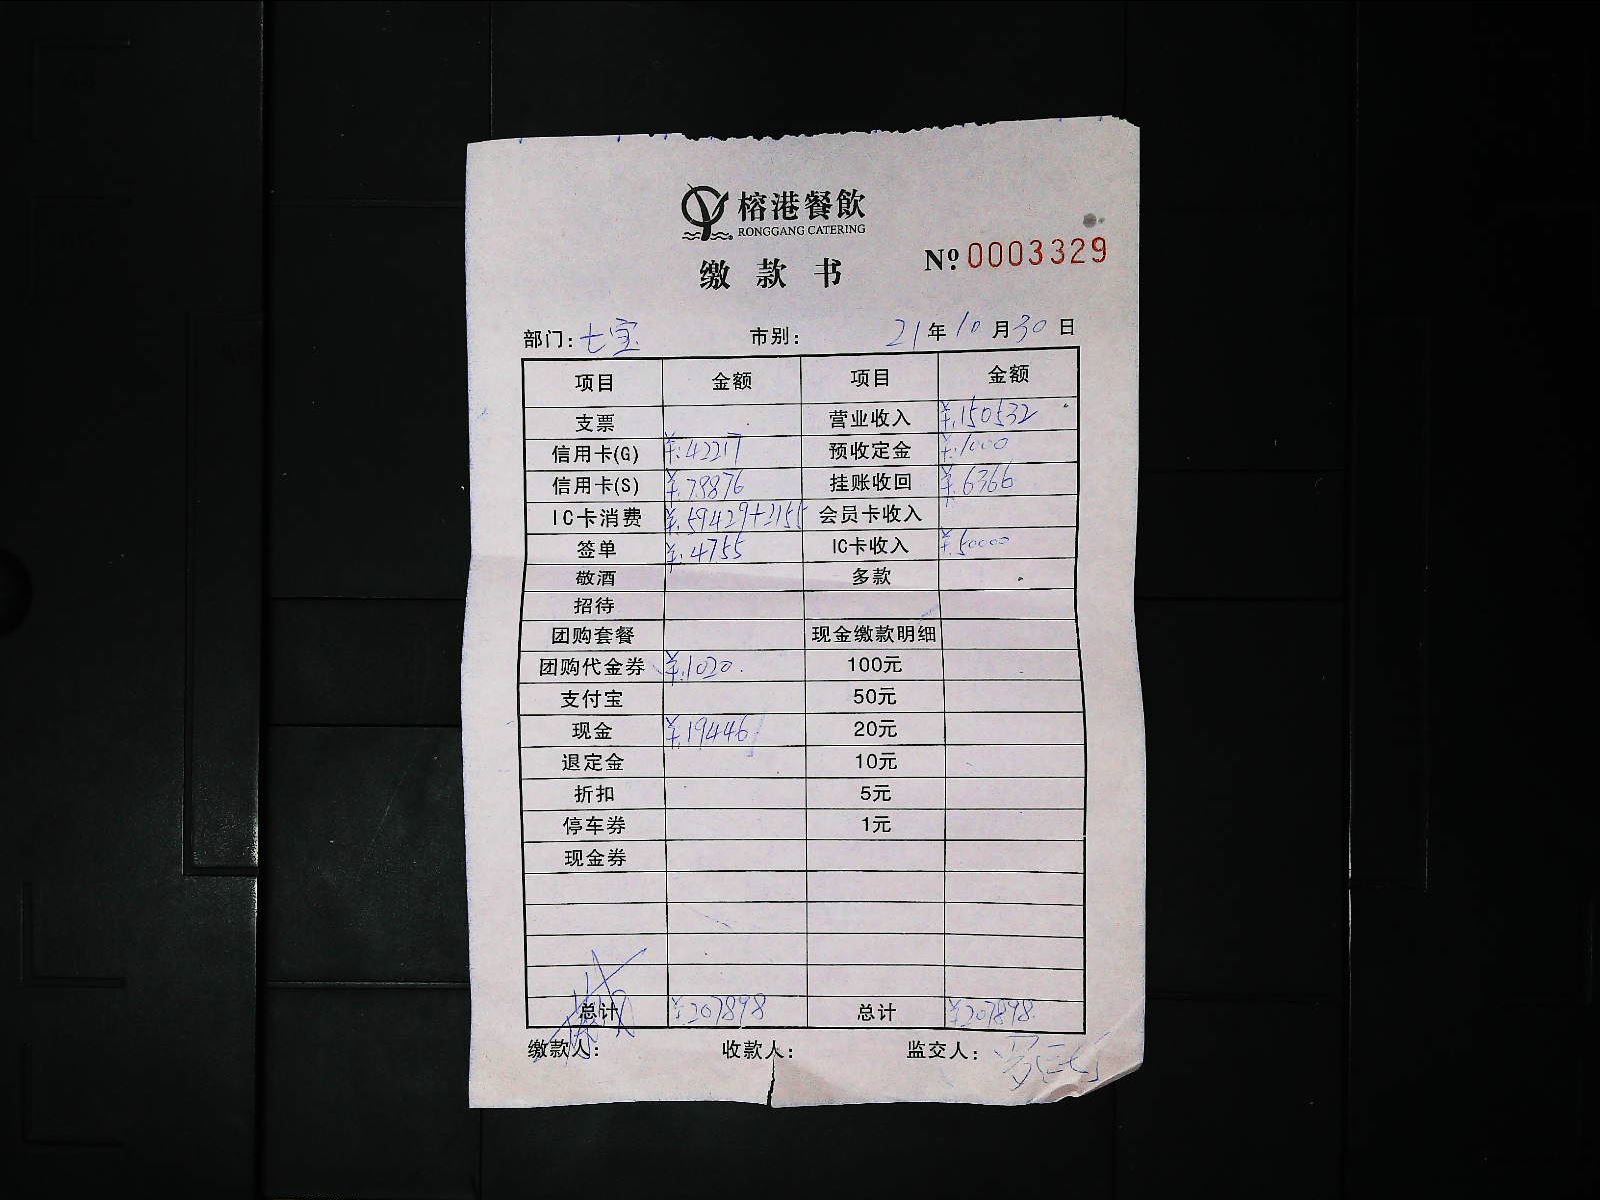 榕港餐飲
RONGGANG CATERING
缴款书 Nº 0003329
部门: 七宝 市别: 21年10月30日
项目 金额 项目 金额
支票 营业收入 ¥:150532
信用卡(G) ¥:42217 预收定金 ¥:1000
信用卡(S) ¥:78876 挂账收回 ¥:6366
IC卡消费 ¥:59429+2155 会员卡收入
签单 ¥:4755 IC卡收入 ¥:50000
敬酒 多款
招待
团购套餐 现金缴款明细
团购代金券 ¥:1020. 100元
支付宝 50元
现金 ¥:19446 20元
退定金 10元
折扣 5元
停车券 1元
现金券
总计 ¥207898 总计 ¥207898.
缴款人: 收款人: 监交人: